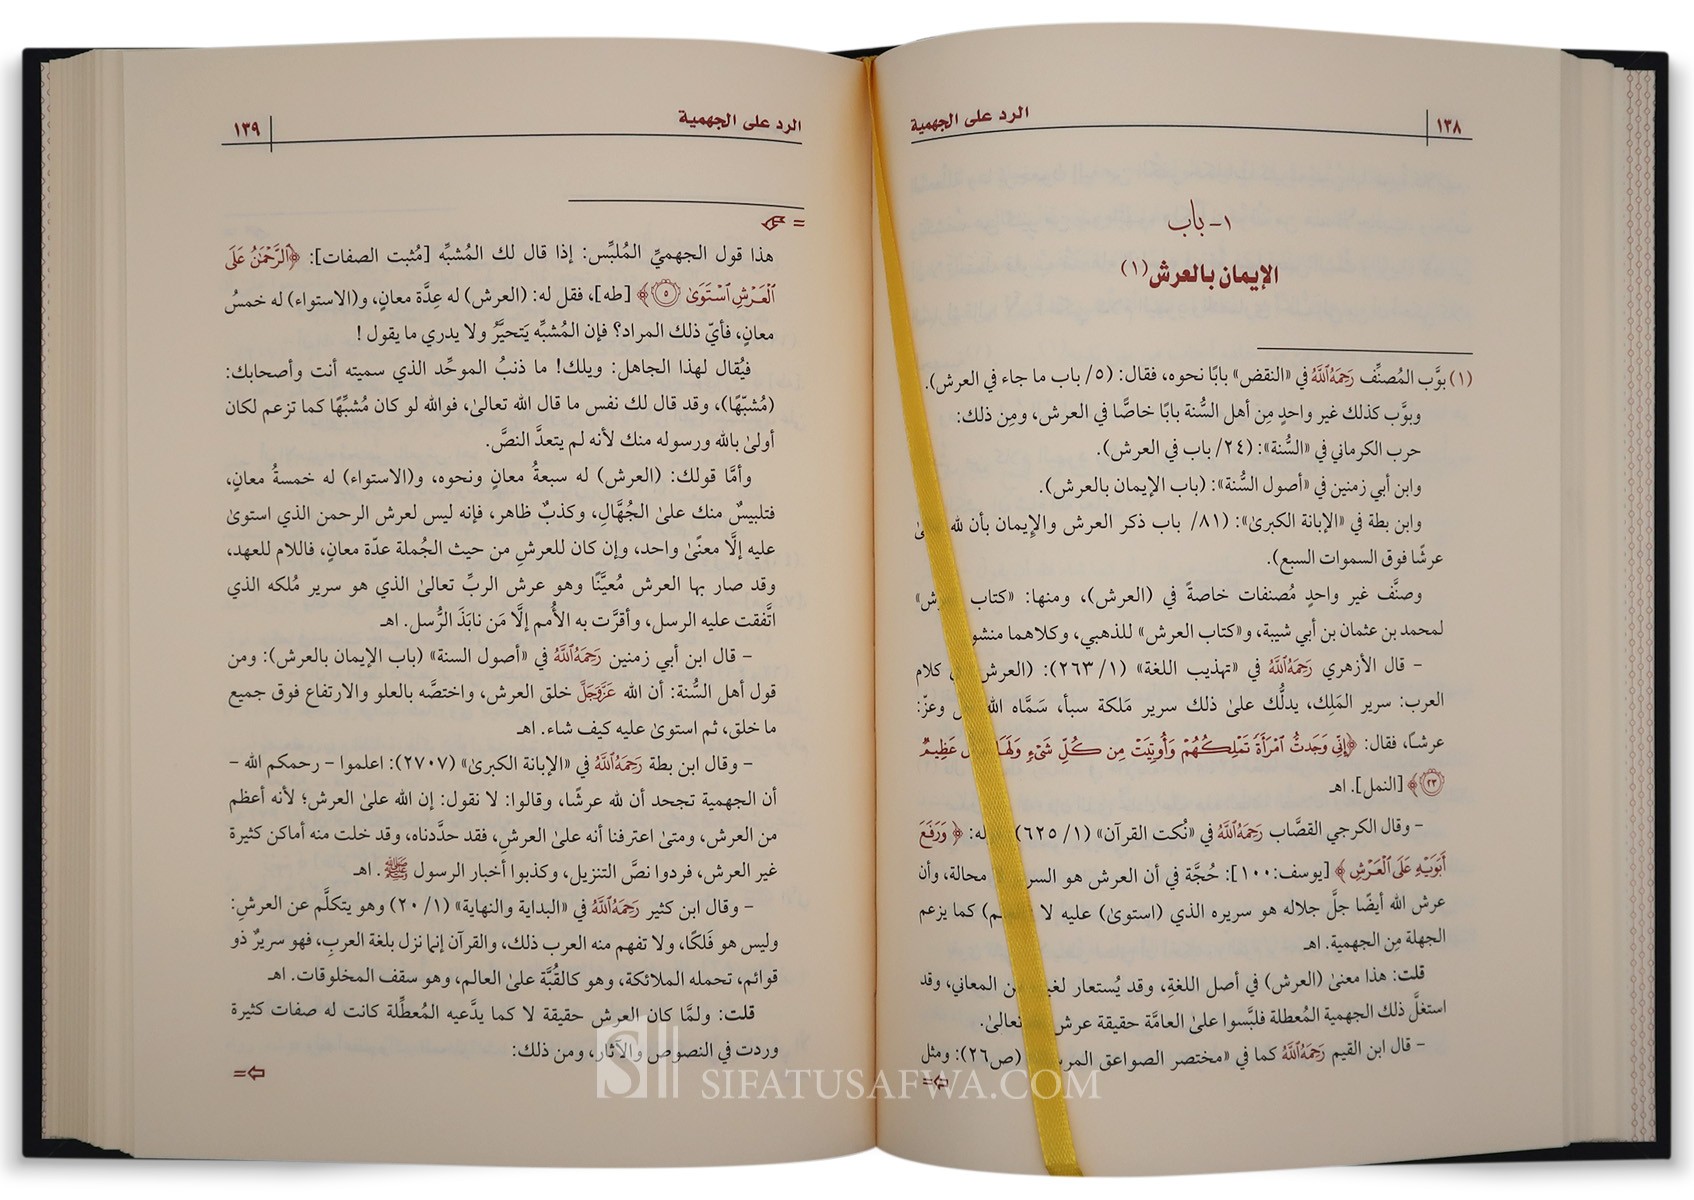 ١٣٨ الرد على الجهمية
١- باب
الإيمان بالعرش (١)
(١) بوَّب المُصنِّف رَحِمَهُ اللَّهُ في «النقض» بابًا نحوه، فقال: (٥/ باب ما جاء في العرش).
وبوَّب كذلك غير واحدٍ مِن أهل السُّنة بابًا خاصًّا في العرش، ومِن ذلك:
حرب الكرماني في «السُّنة»: (٢٤/ باب في العرش).
وابن أبي زمنين في «أصول السُّنة»: (باب الإيمان بالعرش).
وابن بطة في «الإبانة الكبرىٰ»: (٨١/ باب ذكر العرش والإيمان بأن لله
عرشًا فوق السموات السبع).
وصنَّف غير واحدٍ مُصنفات خاصةً في (العرش)، ومنها: «كتاب
لمحمد بن عثمان بن أبي شيبة، و«كتاب العرش» للذهبي، وكلاهما
– قال الأزهري رَحِمَهُ اللَّهُ في «تهذيب اللغة» (١/ ٢٦٣): (العرش كلام
العرب: سرير المَلِك، يدلُّك علىٰ ذلك سرير مَلكة سبأ، سَمَّاه الله وعزّ:
عرشًا، فقال: ﴿إِنِّي وَجَدتُّ ٱمْرَأَةً تَمْلِكُهُمْ وَأُوتِيَتْ مِن كُلِّ شَىْءٍ وَلَهَا عَظِيمٌ
٢٣﴾ [النمل]. اهـ
– وقال الكرجي القصَّاب رَحِمَهُ اللَّهُ في «نُكت القرآن» (١/ ٦٢٥) ﴿وَرَفَعَ
أَبَوَيْهِ عَلَى ٱلْعَرْشِ﴾ [يوسف: ١٠٠]: حُجَّة في أن العرش هو محالة، وأن
عرش الله أيضًا جلَّ جلاله هو سريره الذي (استوىٰ) عليه لا كما يزعم
الجهلة مِن الجهمية. اهـ
قلت: هذا معنىٰ (العرش) في أصل اللغةِ، وقد يُستعار المعاني، وقد
استغلَّ ذلك الجهمية المُعطلة فلبَّسوا علىٰ العامَّة حقيقة عرش تعالىٰ.
– قال ابن القيم رَحِمَهُ اللَّهُ كما في «مختصر الصواعق (ص٢٦): ومثل
=
الرد على الجهمية ١٣٩
=
هذا قول الجهميِّ المُلبِّس: إذا قال لك المُشبِّه [مُثبت الصفات]: ﴿ٱلرَّحْمَٰنُ عَلَى
ٱلْعَرْشِ ٱسْتَوَىٰ ٥﴾ [طه]، فقل له: (العرش) له عِدَّة معانٍ، و(الاستواء) له خمسُ
معانٍ، فأيّ ذلك المراد؟ فإن المُشبِّه يَتحيَّرُ ولا يدري ما يقول !
فيُقال لهذا الجاهل: ويلك! ما ذنبُ الموحِّد الذي سميته أنت وأصحابك:
(مُشبّهًا)، وقد قال لك نفس ما قال الله تعالىٰ، فوالله لو كان مُشبِّهًا كما تزعم لكان
أولىٰ بالله ورسوله منك لأنه لم يتعدَّ النصَّ.
وأمَّا قولك: (العرش) له سبعةُ معانٍ ونحوه، و(الاستواء) له خمسةُ معانٍ،
فتلبيسٌ منك علىٰ الجُهَّالِ، وكذبٌ ظاهر، فإنه ليس لعرش الرحمن الذي استوىٰ
عليه إلَّا معنًىٰ واحد، وإن كان للعرشِ مِن حيث الجُملة عدّة معانٍ، فاللام للعهد،
وقد صار بها العرش مُعيَّنًا وهو عرش الربِّ تعالىٰ الذي هو سرير مُلكه الذي
اتَّفقت عليه الرسل، وأقرَّت به الأُمم إلَّا مَن نابَذَ الرُّسل. اهـ
– قال ابن أبي زمنين رَحِمَهُ اللَّهُ في «أصول السنة» (باب الإيمان بالعرش): ومن
قول أهل السُّنة: أن الله عَزَّوَجَلَّ خلق العرش، واختصَّه بالعلو والارتفاع فوق جميع
ما خلق، ثم استوىٰ عليه كيف شاء. اهـ
– وقال ابن بطة رَحِمَهُ اللَّهُ في «الإبانة الكبرىٰ» (٢٧٠٧): اعلموا – رحمكم الله –
أن الجهمية تجحد أن لله عرشًا، وقالوا: لا نقول: إن الله علىٰ العرش؛ لأنه أعظم
من العرش، ومتىٰ اعترفنا أنه علىٰ العرشِ، فقد حدَّدناه، وقد خلت منه أماكن كثيرة
غير العرش، فردوا نصَّ التنزيل، وكذبوا أخبار الرسول ﷺ. اهـ
– وقال ابن كثير رَحِمَهُ اللَّهُ في «البداية والنهاية» (١/ ٢٠) وهو يتكلَّم عن العرش:
وليس هو فَلكًا، ولا تفهم منه العرب ذلك، والقرآن إنما نزل بلغة العربِ، فهو سريرٌ ذو
قوائم، تحمله الملائكة، وهو كالقُبَّة علىٰ العالم، وهو سقف المخلوقات. اهـ
قلت: ولمَّا كان العرش حقيقة لا كما يدَّعيه المُعطِّلة كانت له صفات كثيرة
وردت في النصوص والآثار، ومن ذلك:
=
SIFATUSAFWA.COM